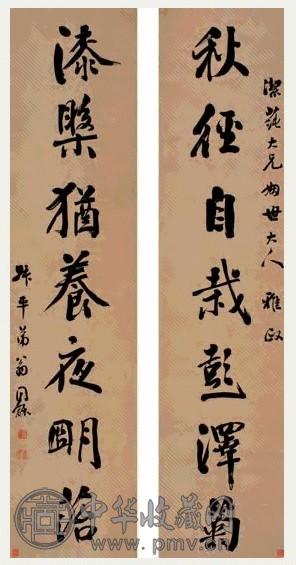 潔蓀大兄姻世大人 雅政
秋徑自栽彭澤菊
漆槃猶養夜明蛤
叔平弟翁同龢
中华收藏网
www.pmv.cn